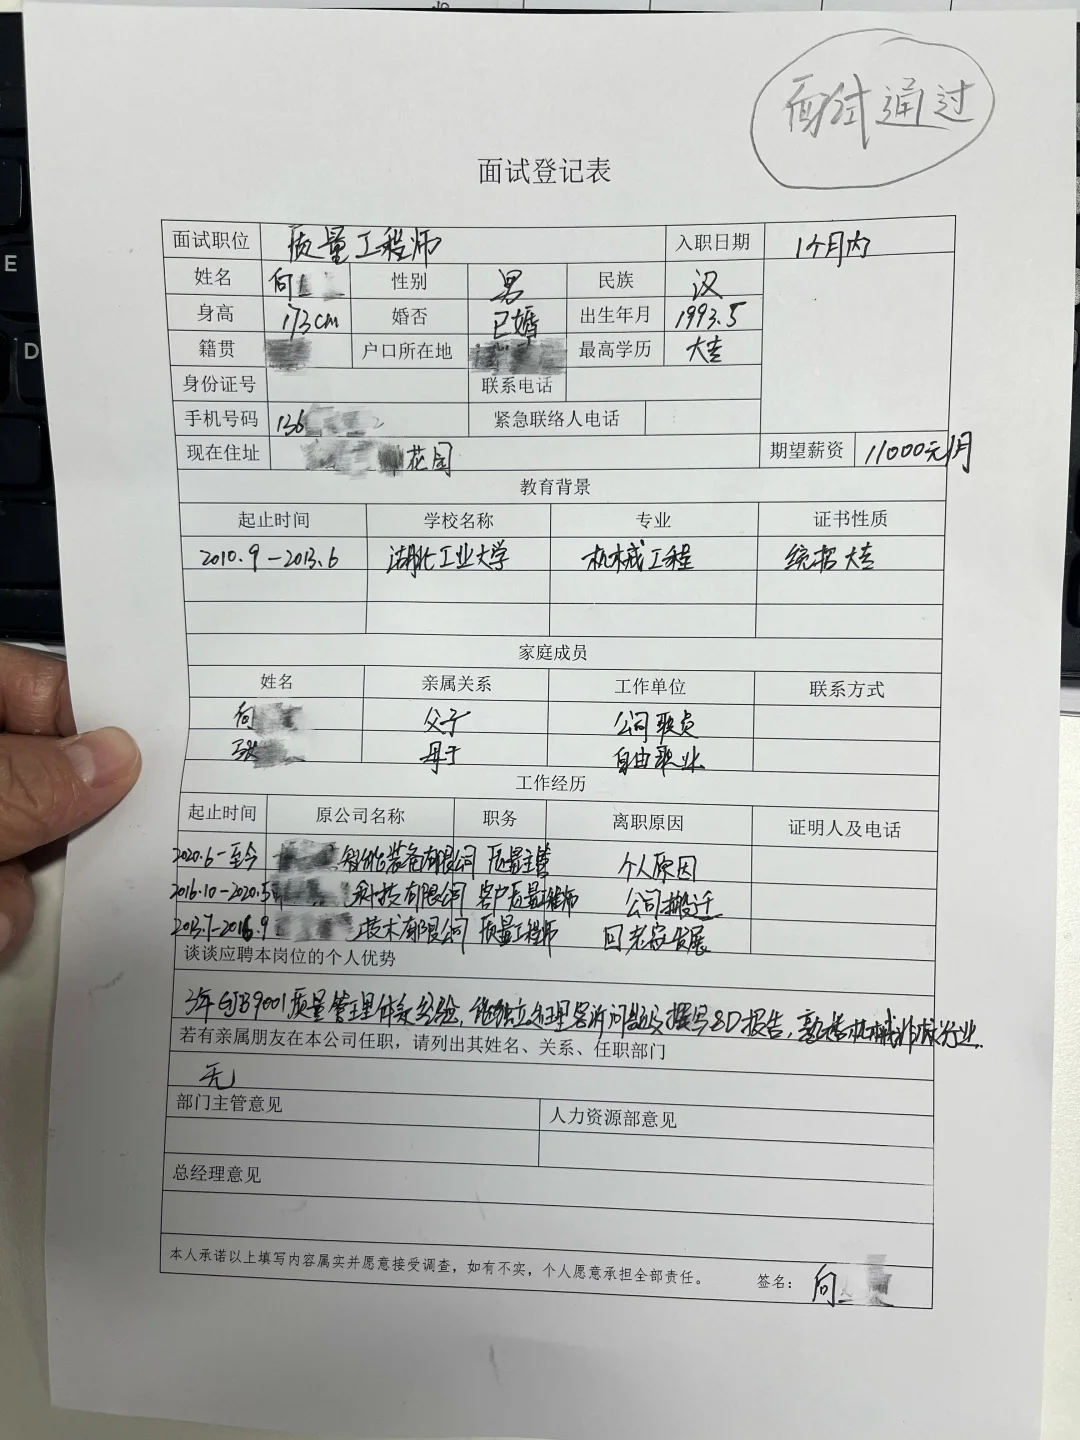 面试通过
面试登记表
面试职位 质量工程师 入职日期 1个月内
姓名 向 性别 男 民族 汉
身高 173cm 婚否 已婚 出生年月 1993.5
籍贯 户口所在地 最高学历 大专
身份证号 联系电话
手机号码 136 2 紧急联络人电话
现在住址 花园 期望薪资 11000元/月
教育背景
起止时间 学校名称 专业 证书性质
2010.9-2013.6 湖北工业大学 机械工程 统招大专
家庭成员
姓名 亲属关系 工作单位 联系方式
向 父子 公司职员
母子 自由职业
工作经历
起止时间 原公司名称 职务 离职原因 证明人及电话
2020.6-至今 智能装备有限公司 质量主管 个人原因
2016.10-2020.5 科技有限公司 客户质量工程师 公司搬迁
2013.7-2016.9 技术有限公司 质量工程师 回老家发展
谈谈应聘本岗位的个人优势
3年GJB9001质量管理体系经验,能独立处理客诉问题及撰写8D报告,熟悉机械行业.
若有亲属朋友在本公司任职，请列出其姓名、关系、任职部门
无
部门主管意见 人力资源部意见
总经理意见
本人承诺以上填写内容属实并愿意接受调查，如有不实，个人愿意承担全部责任。 签名： 向